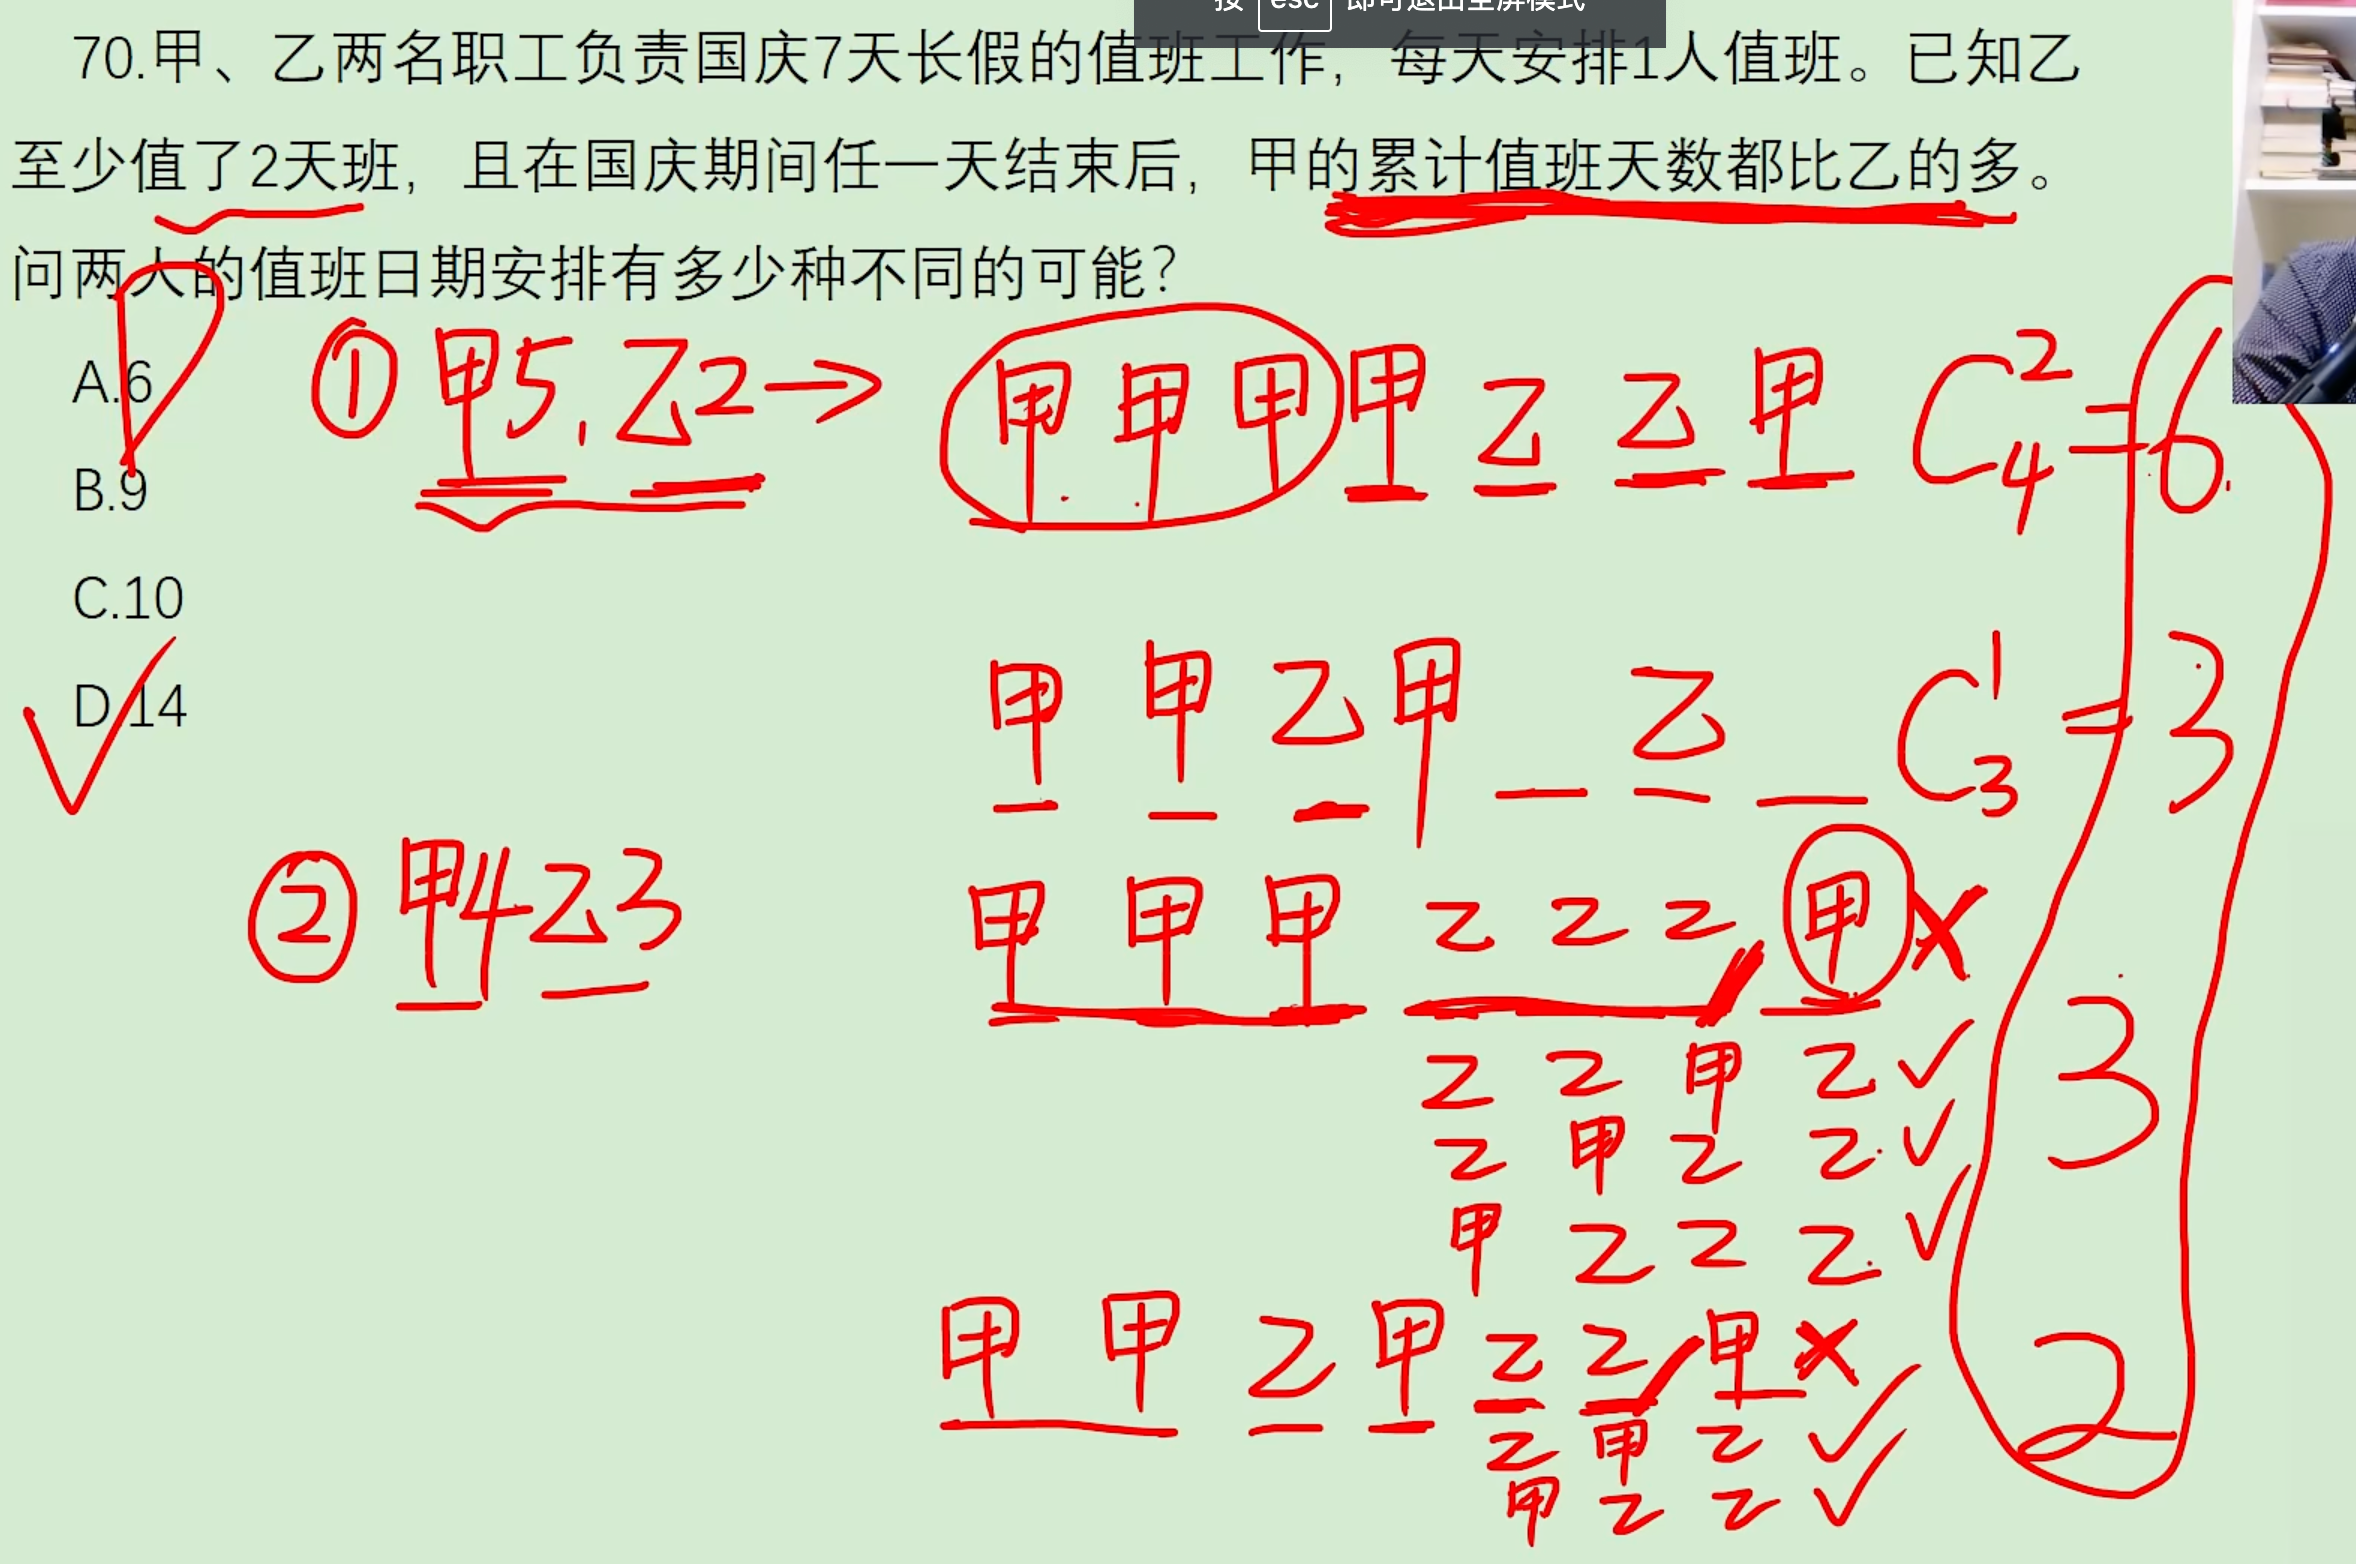 按 esc 即可退出全屏模式
70.甲、乙两名职工负责国庆7天长假的值班工作，每天安排1人值班。已知乙
至少值了2天班，且在国庆期间任一天结束后，甲的累计值班天数都比乙的多。
问两人的值班日期安排有多少种不同的可能？
A.6
B.9
C.10
D.14
① 甲5,乙2→ 甲甲甲甲乙乙甲 C₄²=6
甲甲乙甲_乙_ C₃¹=3
② 甲4乙3 甲甲甲乙乙乙甲×
乙乙甲乙✓ 3
乙甲乙乙✓
甲乙乙乙✓
甲甲乙甲乙乙甲× 2
乙甲乙✓
甲乙乙✓